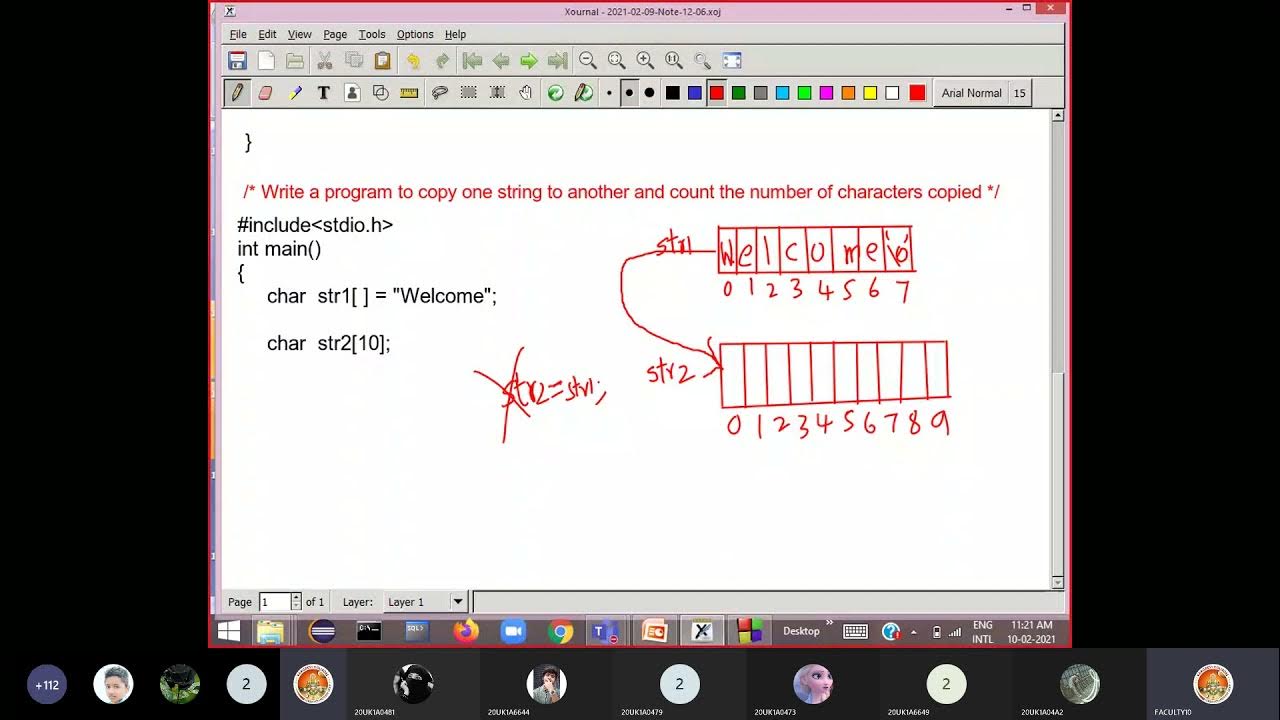 Xournal - 2021-02-09-Note-12-06.xoj
File Edit View Page Tools Options Help
Arial Normal 15
}
/* Write a program to copy one string to another and count the number of characters copied */
#include<stdio.h>
int main()
{
char str1[ ] = "Welcome";
char str2[10];
str2=str1;
str1 W e l c o m e '\0'
0 1 2 3 4 5 6 7
str2
0 1 2 3 4 5 6 7 8 9
Page 1 of 1 Layer: Layer 1
Desktop
ENG
INTL
11:21 AM
10-02-2021
+112
2
2
2
20UK1A0481
20UK1A6644
20UK1A0479
20UK1A0473
20UK1A6649
20UK1A04A2
FACULTY10